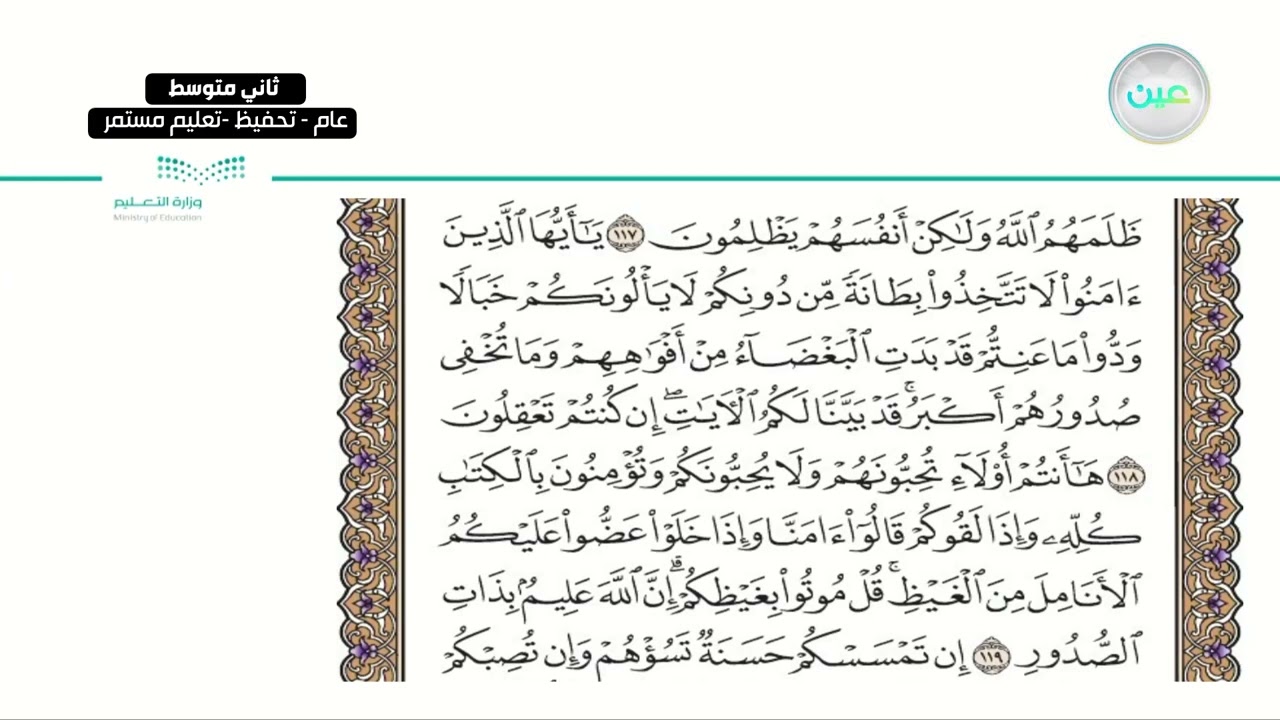 ثاني متوسط
عام - تحفيظ -تعليم مستمر
عين
وزارة التعـــليم
Ministry of Education
ظَلَمَهُمُ ٱللَّهُ وَلَٰكِنْ أَنفُسَهُمْ يَظْلِمُونَ ١١٧ يَٰٓأَيُّهَا ٱلَّذِينَ
ءَامَنُوا۟ لَا تَتَّخِذُوا۟ بِطَانَةً مِّن دُونِكُمْ لَا يَأْلُونَكُمْ خَبَالًا
وَدُّوا۟ مَا عَنِتُّمْ قَدْ بَدَتِ ٱلْبَغْضَآءُ مِنْ أَفْوَٰهِهِمْ وَمَا تُخْفِى
صُدُورُهُمْ أَكْبَرُ ۚ قَدْ بَيَّنَّا لَكُمُ ٱلْءَايَٰتِ ۖ إِن كُنتُمْ تَعْقِلُونَ
١١٨ هَٰٓأَنتُمْ أُو۟لَآءِ تُحِبُّونَهُمْ وَلَا يُحِبُّونَكُمْ وَتُؤْمِنُونَ بِٱلْكِتَٰبِ
كُلِّهِۦ وَإِذَا لَقُوكُمْ قَالُوٓا۟ ءَامَنَّا وَإِذَا خَلَوْا۟ عَضُّوا۟ عَلَيْكُمُ
ٱلْأَنَامِلَ مِنَ ٱلْغَيْظِ ۚ قُلْ مُوتُوا۟ بِغَيْظِكُمْ ۗ إِنَّ ٱللَّهَ عَلِيمٌۢ بِذَاتِ
ٱلصُّدُورِ ١١٩ إِن تَمْسَسْكُمْ حَسَنَةٌ تَسُؤْهُمْ وَإِن تُصِبْكُمْ